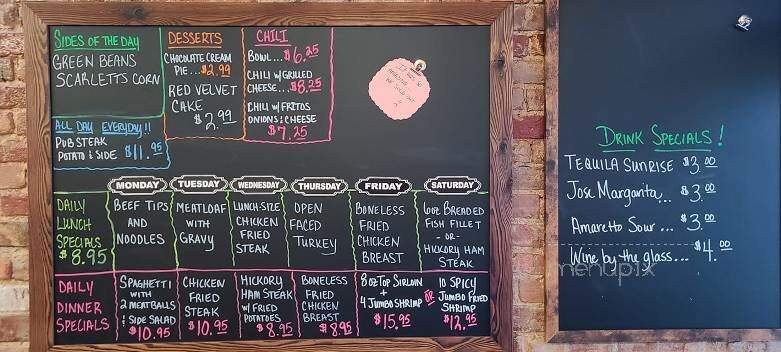 SIDES OF THE DAY
GREEN BEANS
SCARLETTS CORN
ALL DAY EVERYDAY!!
PUB STEAK
POTATO & SIDE $11.95
DESSERTS
CHOCOLATE CREAM
PIE...$2.99
RED VELVET
CAKE
$2.99
CHILI
BOWL...$6.25
CHILI W/ GRILLED
CHEESE...$8.25
CHILI W/ FRITOS
ONIONS & CHEESE
$7.25
MONDAY
TUESDAY
WEDNESDAY
THURSDAY
FRIDAY
SATURDAY
DAILY
LUNCH
SPECIALS
$8.95
BEEF TIPS
AND
NOODLES
MEATLOAF
WITH
GRAVY
LUNCH-SIZE
CHICKEN
FRIED
STEAK
OPEN
FACED
TURKEY
BONELESS
FRIED
CHICKEN
BREAST
6oz BREADED
FISH FILLET
-OR-
HICKORY HAM
STEAK
DAILY
DINNER
SPECIALS
SPAGHETTI
WITH
2 MEATBALLS
& SIDE SALAD
$10.95
CHICKEN
FRIED
STEAK
$10.95
HICKORY
HAM STEAK
W/ FRIED
POTATOES
$8.95
BONELESS
FRIED
CHICKEN
BREAST
$8.95
8oz TOP SIRLOIN
+
4 JUMBO SHRIMP
$15.95
OR
10 SPICY
JUMBO FRIED
SHRIMP
$12.95
DRINK SPECIALS!
TEQUILA SUNRISE $3.00
Jose Margarita... $3.00
Amaretto Sour... $3.00
Wine by the glass...$4.00
menupix